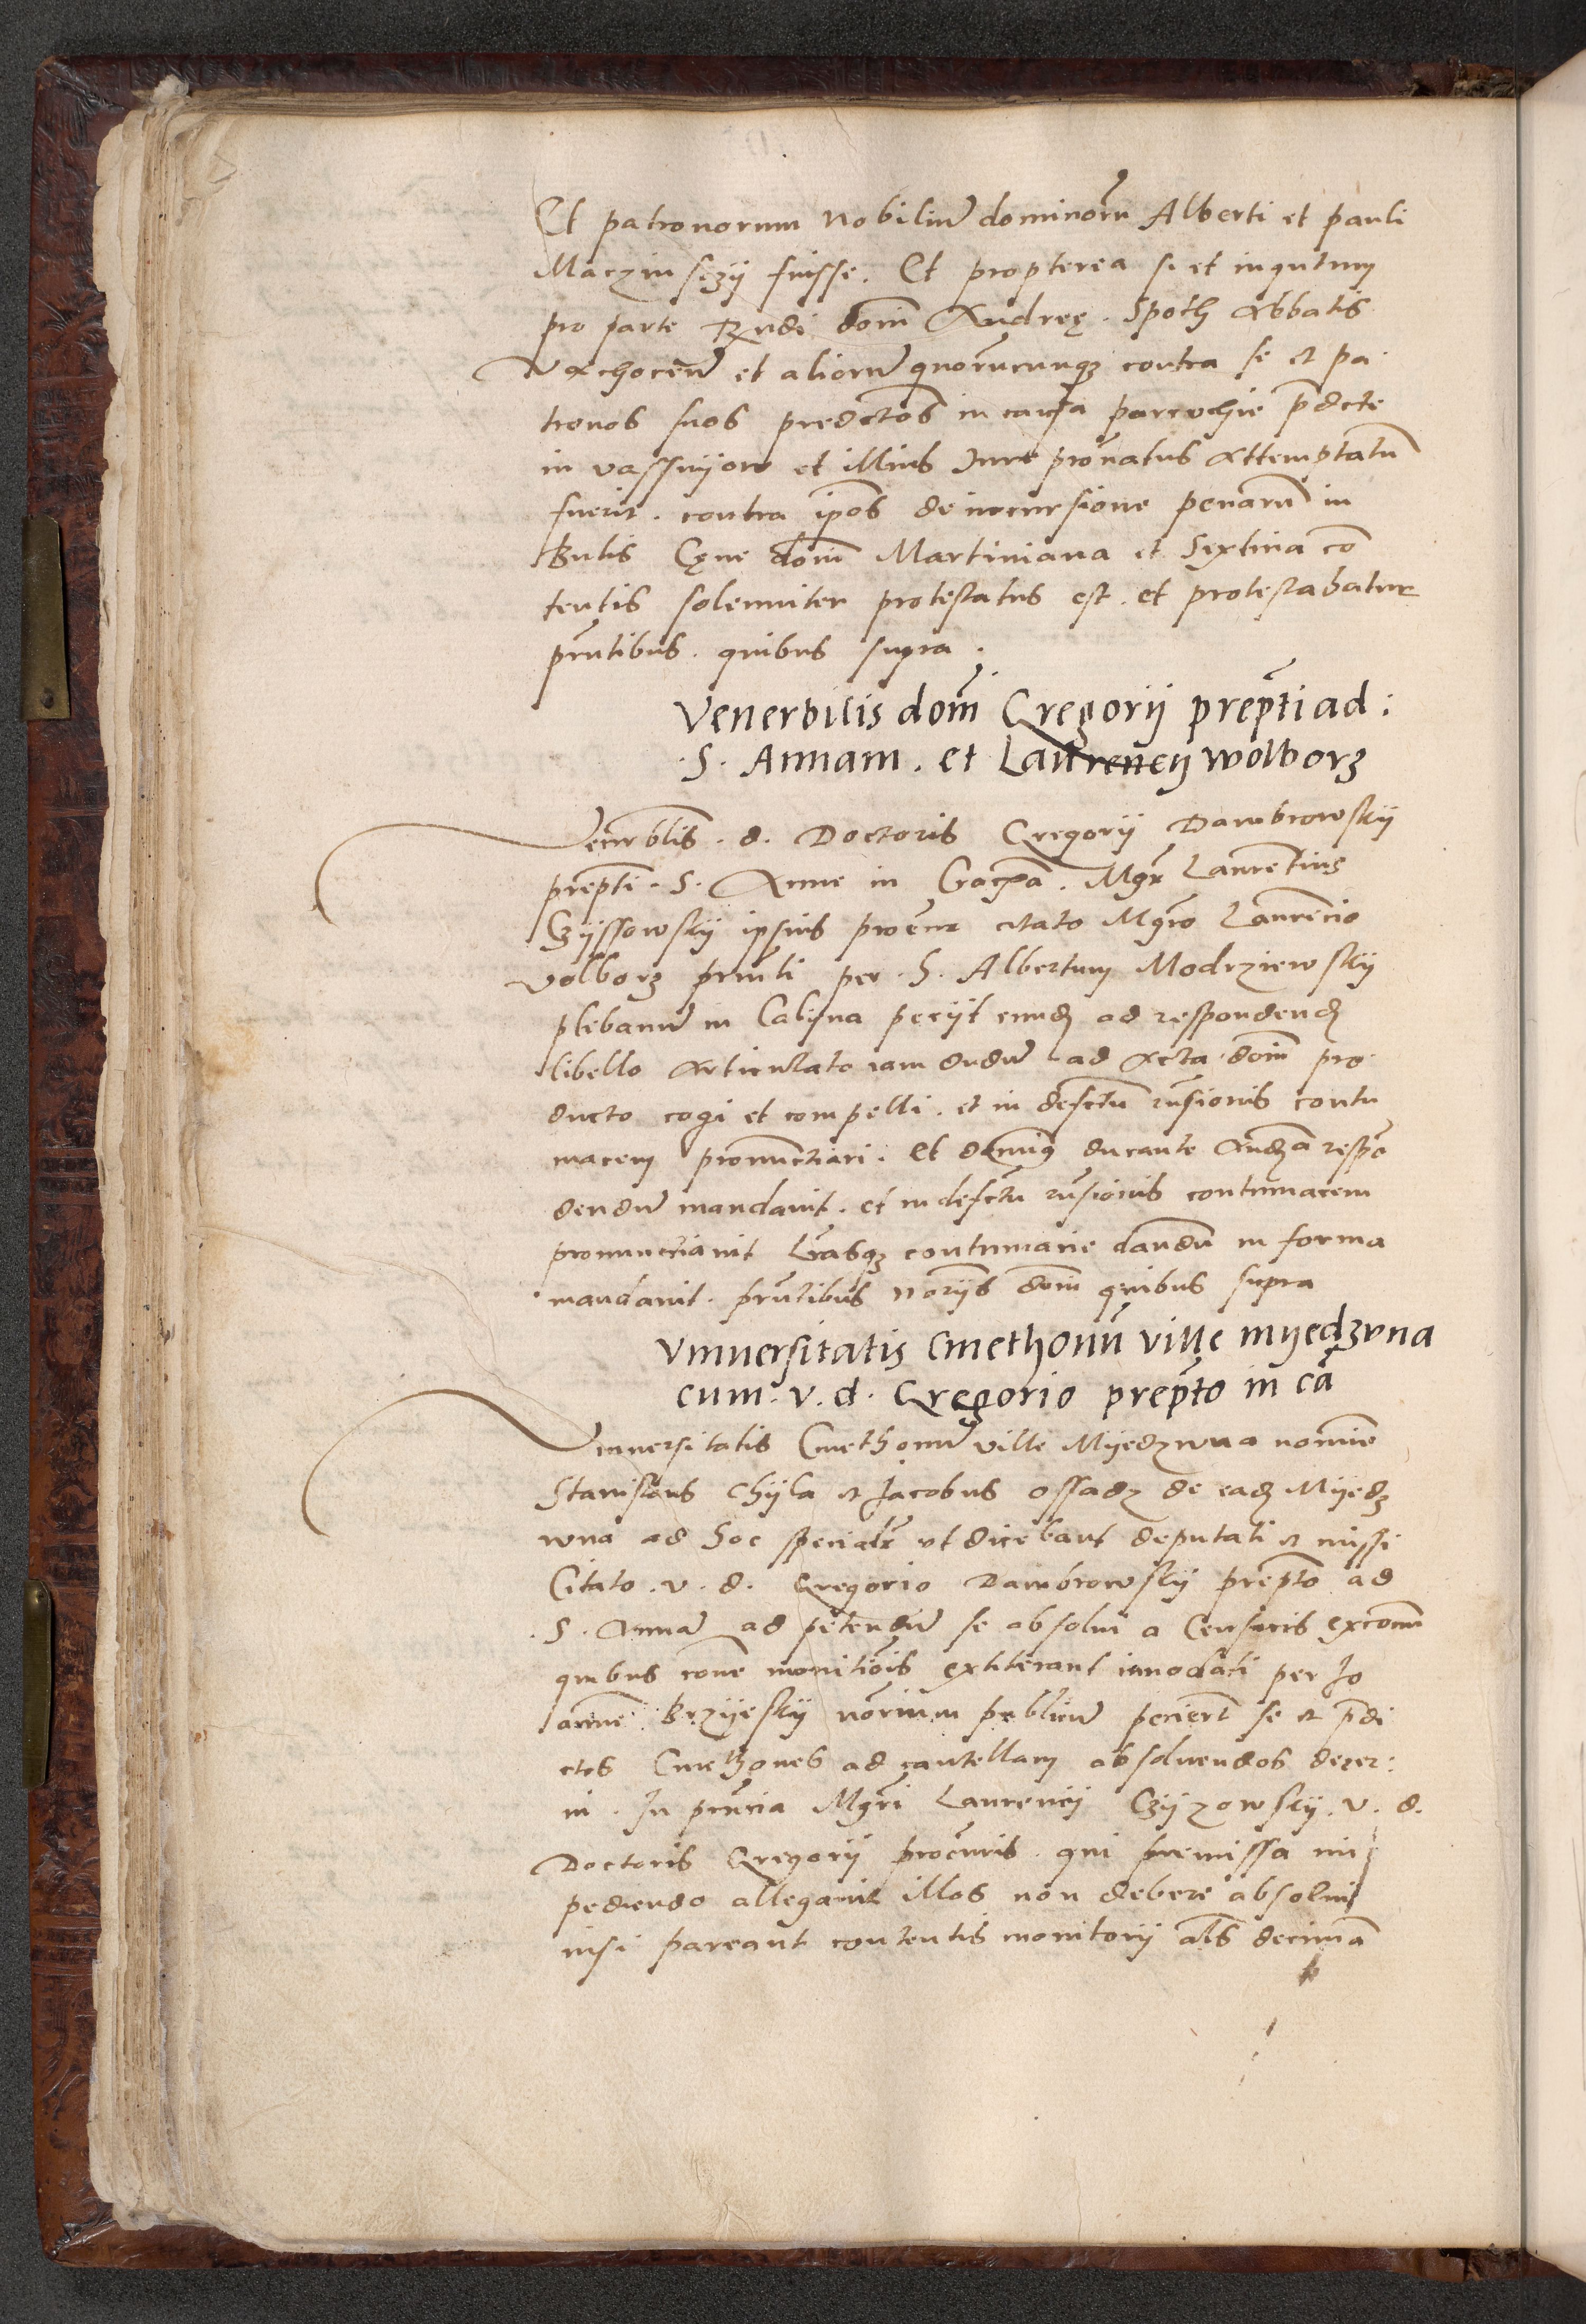 Et patronorum Nobiliū dominorū Alberti et pauli
Marzinsczij fuisse. Et propterea si et inqutum
pro parte Rndi dom̄ Andreę. Spoth Abbatis
Wachoceñ et aliorū quorūcunqʒ contra se et pa
tronos suos predctos in causa parrochie p̄dcte
in vassnijow et illius Jure pro͞natus Attemptatū
fuerit. contra ip̄os de incursione penarū in
Bulis Cęne dom̄ Martiniana et Sextina co͞
tentis solenniter protestatus est. et protestabatur
pn̄tibus. quibus supra.
Venerbilis dom̄ Gregorij prep̄ti ad:
.S. Annam. et Laurencij wolborʒ
Venerblis. d. Doctoris Gregorij Dambrowskij
prep̄ti. S. Anne in Crac͞a. Mgr̄ Laurentius
Czijssowskij ipsius procur̄ citato Mgr̄o Laurēcio
volborʒ pn̄ti per. h. Albertum Modrziewskij
plebanū in Calijna peciit eundē ad respondendū
libello Articulato iam dudū ad Acta dom̄ pro
ducto cogi et compelli. et in defctū rn̄sionis contu
macem pronunctiari. Et d͞nus durante Aud͞a respō
dendū mandavit. et in defctu rn̄sionis contumacem
pronuncciavit l͞rasqʒ contumacie dandū in forma
mandavit. pn̄tibus no͞rijs dom̄ quibus supra
Vniversitatis Cmethonū ville mijedzvna
cum. v. d. Gregorio prep̄to in cā
Vniversitatis Cmethonū ville Mijedzwna nomīe
Stanislaus Chijla et Jacobus ossadz de eadē Mijedʒ
wna ad hoc specialr̄ ut dicebant deputati et missi
Citato. v. d. Gregorio Dambrowskij prep̄to ad
.S. Annā ad petendū se absolui a Censuris excom̄
quibus rōne monitiōis extiterant innodati per Jo
annē Brzijeskij no͞rium publicū pecierūt se et p̄di
ctos Cmethones ad cautellam absoluendos decer:
ni. In pn̄cia Mgr̄i Laurencij Czijzowskij. v. d.
Doctoris Gregorij procuris. qui premissa im
pediendo allegavit illos non debere absolui
nisi pareant contentis monitorij al͞s decimā